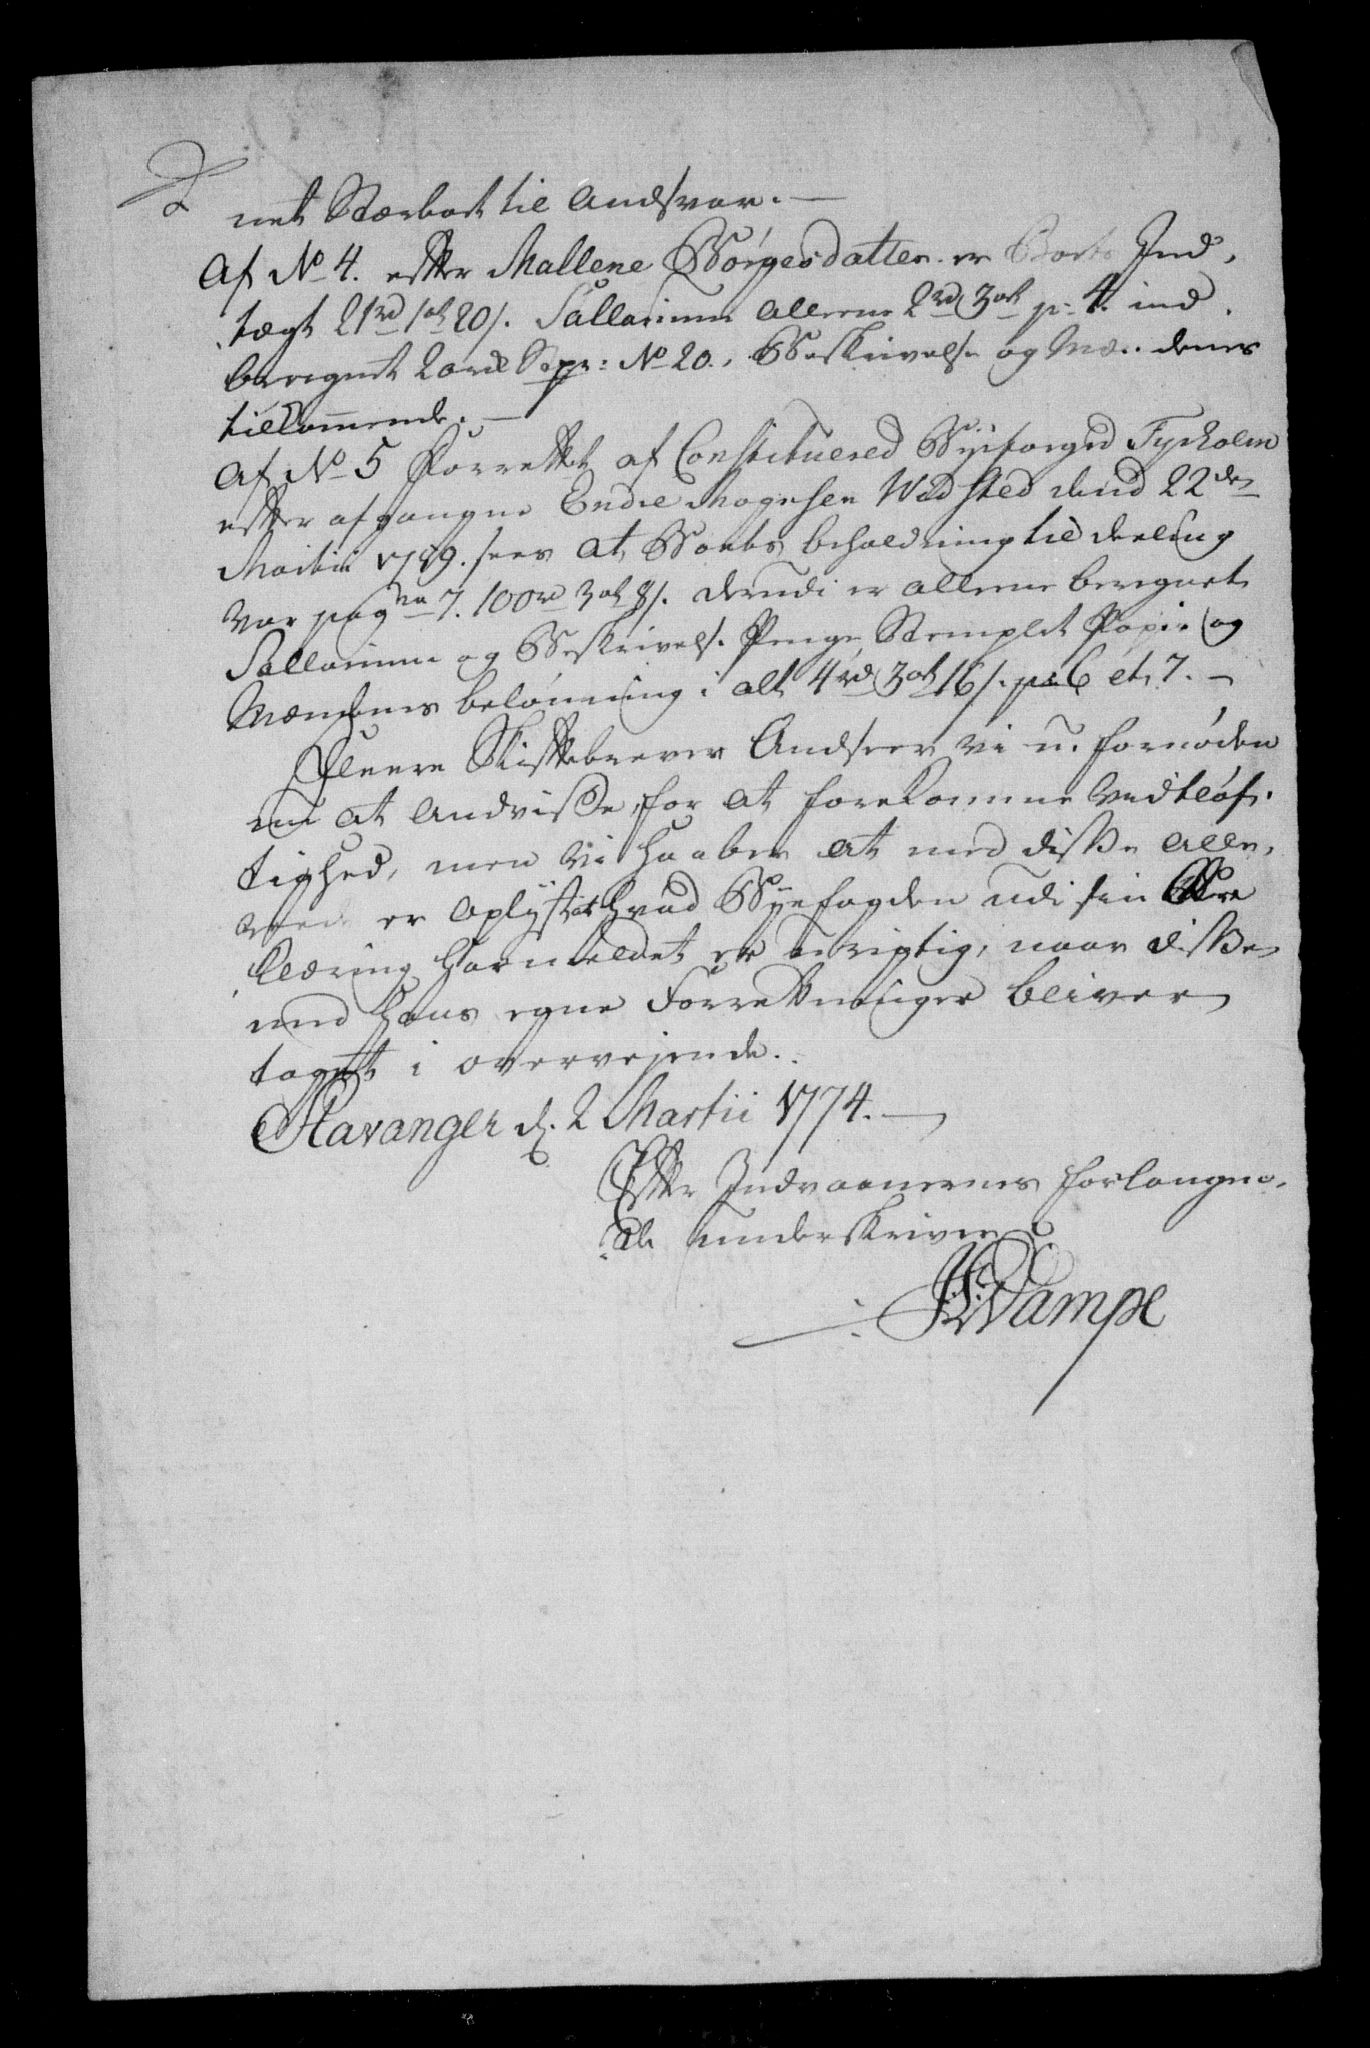 net Stærboet til Andsvar. —
Af No 4. efter Mallene Børgesdatter er Boets Ind,
tægt 21rd 1ok 20s. Sallarium alleene 2rd 3ok p: 4. ind
beregnet Lovens No 20. Beskrivelse og Mændenes
tilkommende. —
Af No 5 Forrettet af Constituered Byefoged Tyrholm
efter afgangne Endre Mogensen Wedsted dend 22den
Martii 1749. sees at Boets beholdning til deeling
var pagna 7. 100rd 3ok 8s. derudi er alleene beregnet
Sallarium og Beskrivelse Penge, Stemplet Papir og
Mændenes belønning i alt 4rd 3ok 16s. p: 6 et 7. —
Fleere Skiftebrever Andseer vi u fornøden
me at Andvisse, for at forekomme Vidtløf.
tighed, men vi haaber at med disse alle,
veed er oplyst at hvad Byefogden udi sin Erre
klæring har meldet er urigtig, naar disse
med hans egne Forretninger bliver
taget i overvejende.
Stavanger d. 2 Martii 1774. —
Efter Indvaanernes forlangen,
de underskriver
Kampe